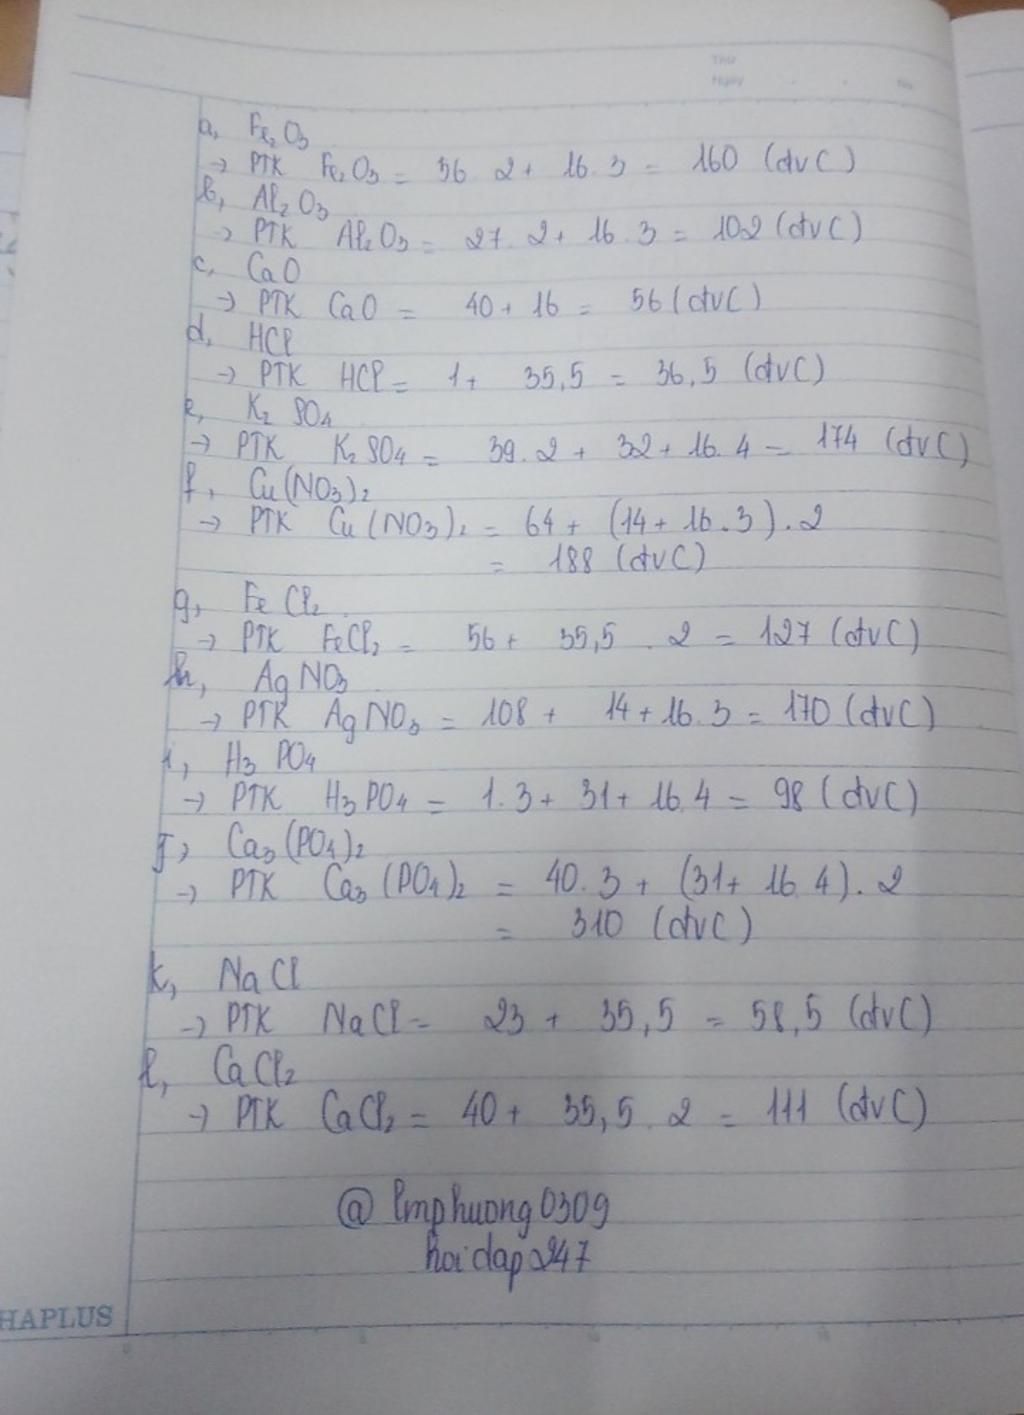 Thứ
Ngày No.
a, Fe₂O₃
→ PTK Fe₂O₃ = 56 . 2 + 16 . 3 = 160 (đvC)
b, Al₂O₃
→ PTK Al₂O₃ = 27 . 2 + 16 . 3 = 102 (đvC)
c, CaO
→ PTK CaO = 40 + 16 = 56 (đvC)
d, HCl
→ PTK HCl = 1 + 35,5 = 36,5 (đvC)
e, K₂SO₄
→ PTK K₂SO₄ = 39 . 2 + 32 + 16 . 4 = 174 (đvC)
f, Cu(NO₃)₂
→ PTK Cu(NO₃)₂ = 64 + (14 + 16 . 3) . 2
= 188 (đvC)
g, FeCl₂
→ PTK FeCl₂ = 56 + 35,5 . 2 = 127 (đvC)
h, AgNO₃
→ PTK AgNO₃ = 108 + 14 + 16 . 3 = 170 (đvC)
i, H₃PO₄
→ PTK H₃PO₄ = 1 . 3 + 31 + 16 . 4 = 98 (đvC)
j, Ca₃(PO₄)₂
→ PTK Ca₃(PO₄)₂ = 40 . 3 + (31 + 16 . 4) . 2
= 310 (đvC)
k, NaCl
→ PTK NaCl = 23 + 35,5 = 58,5 (đvC)
l, CaCl₂
→ PTK CaCl₂ = 40 + 35,5 . 2 = 111 (đvC)
@lmphuong0309
hoidap247
HAPLUS
0 5 10 15